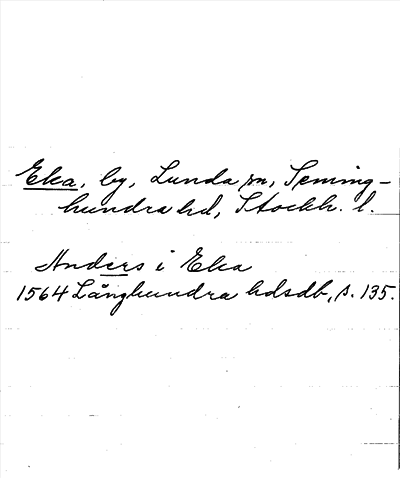 Eka, by, Lunda sn, Seming-
hundra hd, Stockh. l.
Anders i Eka
1564 Långhundra hdsdb, s. 135.